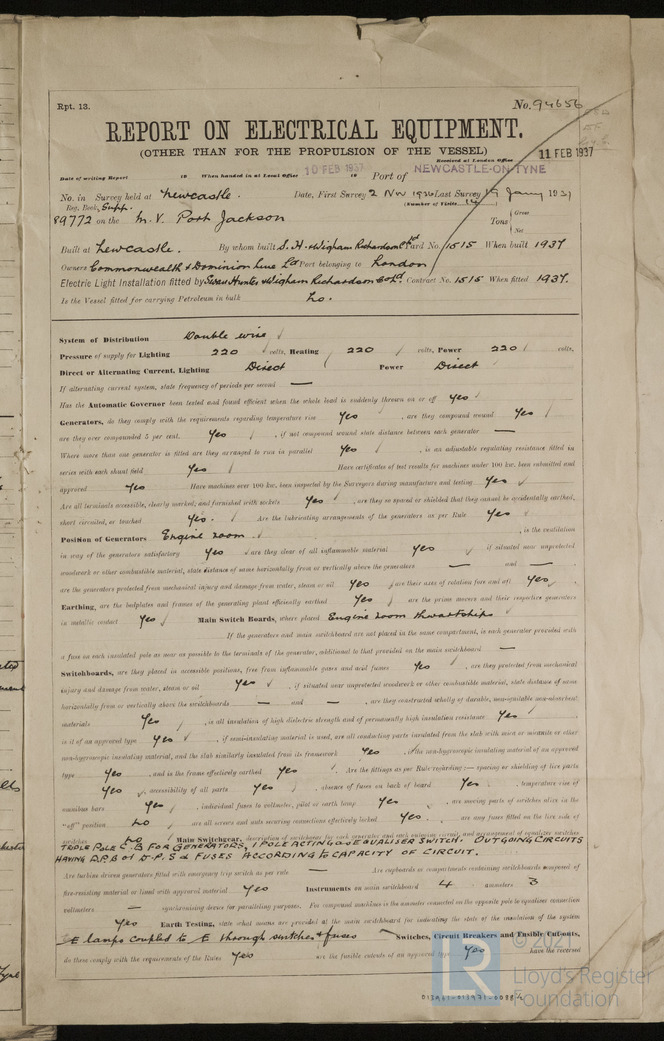 Rpt. 13.
No. 94656
REPORT ON ELECTRICAL EQUIPMENT.
(OTHER THAN FOR THE PROPULSION OF THE VESSEL)
Received at London Office 11 FEB 1937
Date of writing Report 19 When handed in at Local Office 10 FEB 1937 19 Port of NEWCASTLE-ON-TYNE
No. in Survey held at Newcastle. Date, First Survey 2 Nov 1936 Last Survey 19 Jany 1937
Reg. Book. Supp. (Number of Visits 14)
89772 on the M.V. Port Jackson Tons { Gross Net
Built at Newcastle. By whom built S. H. & Wigham Richardson Ltd Yard No. 1515 When built 1937
Owners Commonwealth & Dominion Line Ld Port belonging to London
Electric Light Installation fitted by Swan Hunter & Wigham Richardson Co Ld. Contract No. 1515 When fitted 1937.
Is the Vessel fitted for carrying Petroleum in bulk No.
System of Distribution Double wire
Pressure of supply for Lighting 220 volts, Heating 220 volts, Power 220 volts.
Direct or Alternating Current, Lighting Direct Power Direct
If alternating current system, state frequency of periods per second —
Has the Automatic Governor been tested and found efficient when the whole load is suddenly thrown on or off Yes
Generators, do they comply with the requirements regarding temperature rise Yes, are they compound wound Yes
are they over compounded 5 per cent. Yes, if not compound wound state distance between each generator —
Where more than one generator is fitted are they arranged to run in parallel Yes, is an adjustable regulating resistance fitted in
series with each shunt field Yes Have certificates of test results for machines under 100 kw. been submitted and
approved Yes Have machines over 100 kw. been inspected by the Surveyors during manufacture and testing Yes
Are all terminals accessible, clearly marked, and furnished with sockets Yes, are they so spaced or shielded that they cannot be accidentally earthed,
short circuited, or touched Yes. Are the lubricating arrangements of the generators as per Rule Yes
Position of Generators Engine room, is the ventilation
in way of the generators satisfactory Yes are they clear of all inflammable material Yes if situated near unprotected
woodwork or other combustible material, state distance of same horizontally from or vertically above the generators — and —
are the generators protected from mechanical injury and damage from water, steam or oil Yes, are their axes of rotation fore and aft Yes
Earthing, are the bedplates and frames of the generating plant efficiently earthed Yes are the prime movers and their respective generators
in metallic contact Yes Main Switch Boards, where placed Engine room thwartships
If the generators and main switchboard are not placed in the same compartment, is each generator provided with
a fuse on each insulated pole as near as possible to the terminals of the generator, additional to that provided on the main switchboard —
Switchboards, are they placed in accessible positions, free from inflammable gases and acid fumes Yes, are they protected from mechanical
injury and damage from water, steam or oil Yes, if situated near unprotected woodwork or other combustible material, state distance of same
horizontally from or vertically above the switchboards — and —, are they constructed wholly of durable, non-ignitable non-absorbent
materials Yes, is all insulation of high dielectric strength and of permanently high insulation resistance Yes
is it of an approved type Yes, if semi-insulating material is used, are all conducting parts insulated from the slab with mica or micanite or other
non-hygroscopic insulating material, and the slab similarly insulated from its framework Yes, if the non-hygroscopic insulating material of an approved
type Yes, and is the frame effectively earthed Yes. Are the fittings as per Rule regarding:— spacing or shielding of live parts
Yes, accessibility of all parts Yes, absence of fuses on back of board Yes, temperature rise of
omnibus bars Yes, individual fuses to voltmeter, pilot or earth lamp Yes, are moving parts of switches alive in the
"off" position No are all screws and nuts securing connections effectively locked Yes. are any fuses fitted on the live side of
switches No Main Switchgear, description of switchgear for each generator and each outgoing circuit, and arrangement of equaliser switches
TRIPLE POLE C.B FOR GENERATORS, 1 POLE ACTING as EQUALISER SWITCH. OUTGOING CIRCUITS
HAVING D.P.B or D.P.S & FUSES ACCORDING to CAPACITY OF CIRCUIT.
Are turbine driven generators fitted with emergency trip switch as per rule — Are cupboards or compartments containing switchboards composed of
fire-resisting material or lined with approved material Yes Instruments on main switchboard 4 ammeters 3
voltmeters — synchronising device for paralleling purposes. For compound machines is the ammeter connected on the opposite pole to equaliser connection
Yes Earth Testing, state what means are provided at the main switchboard for indicating the state of the insulation of the system
E lamps coupled to E through switches & fuses Switches, Circuit Breakers and Fusible Cut-outs,
do they comply with the requirements of the Rules Yes are the fusible cutouts of an approved type Yes have the reversed
© 2021
Lloyd's Register
Foundation